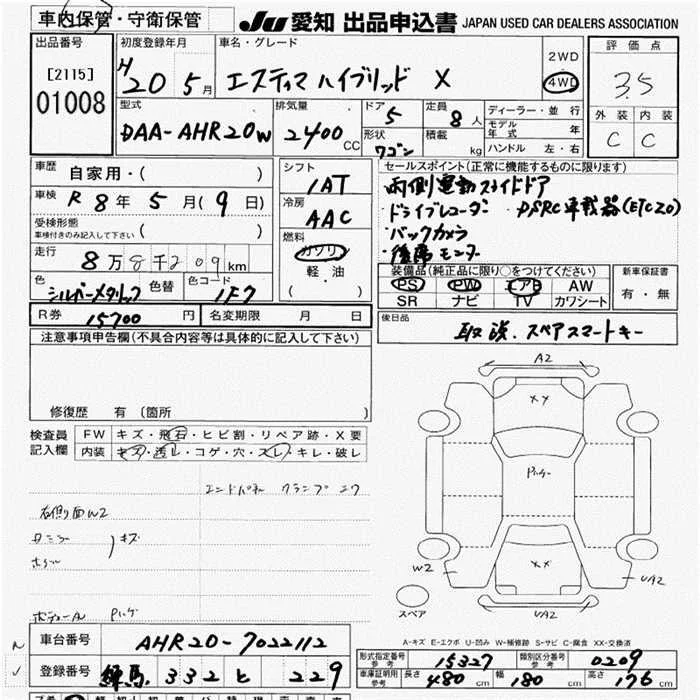 車内保管・守衛保管
JU 愛知 出品申込書 JAPAN USED CAR DEALERS ASSOCIATION
出品番号
[2115]
01008
初度登録年月
H 20 5月
車名・グレード
エスティマ ハイブリッド X
2WD
4WD
評価点
3.5
外装 内装
C C
型式
DAA-AHR20W
排気量
2400 CC
ドア
5
形状
ワゴン
定員
8人
積載
kg
ディーラー・並行
モデル年式 年
ハンドル 左・右
車歴
自家用・( )
車検
R 8年 5月( 9日)
受検形態
車検付きのみ記入して下さい ( )
走行
8万8千209km
色
シルバーメタリック
色替
色コード
1F7
シフト
IAT
冷房
AAC
燃料
ガソリン
軽・油
( )
セールスポイント(正常に機能するものに限ります)
両側電動スライドドア
・ドライブレコーダー ・DSRC車載器(ETC2.0)
・バックカメラ
・後席モニター
装備品(純正品に限り○をつけてください)
PS PW エアB AW
SR ナビ TV カワシート
新車保証書
有・無
R券 15700円
名変期限 月 日
後日品
取説.スペアスマートキー
注意事項申告欄(不具合内容等は具体的に記入して下さい)
修復歴 有(箇所 )
検査員
記入欄
FW キズ・飛石・ヒビ割・リペア跡・X要
内装 キズ・汚レ・コゲ・穴・スレ・キレ・破レ
エンドパネル クランプ エク
右側面W2
キズ
ホイル
A2
XX
XX
W2
UA2
UA2
スペア
A-キズ E-エクボ U-凹み W-補修跡 S-サビ C-腐食 XX-交換済
車台番号
AHR20-7022112
登録番号
練馬 332 と 229
形式指定番号
参考
15327
類別区分番号
参考
0209
車庫証明用
参考
長さ 480cm 幅 180cm 高さ 176cm